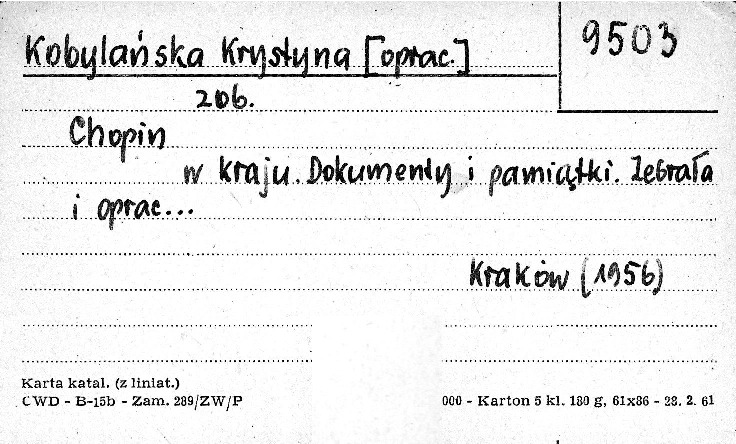 Kobylańska Krystyna [oprac.]
9503
zob.
Chopin
w kraju. Dokumenty i pamiątki. Zebrała
i oprac...
Kraków (1956)
Karta katal. (z liniat.)
CWD - B-15b - Zam. 289/ZW/P
000 - Karton 5 kl. 180 g, 61x86 - 28. 2. 61